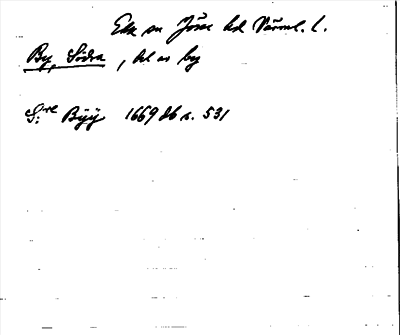 Eda sn Jösse hd Värml. l.
By, Södra, del av by
S:re Byÿ 1669 Jb s. 531